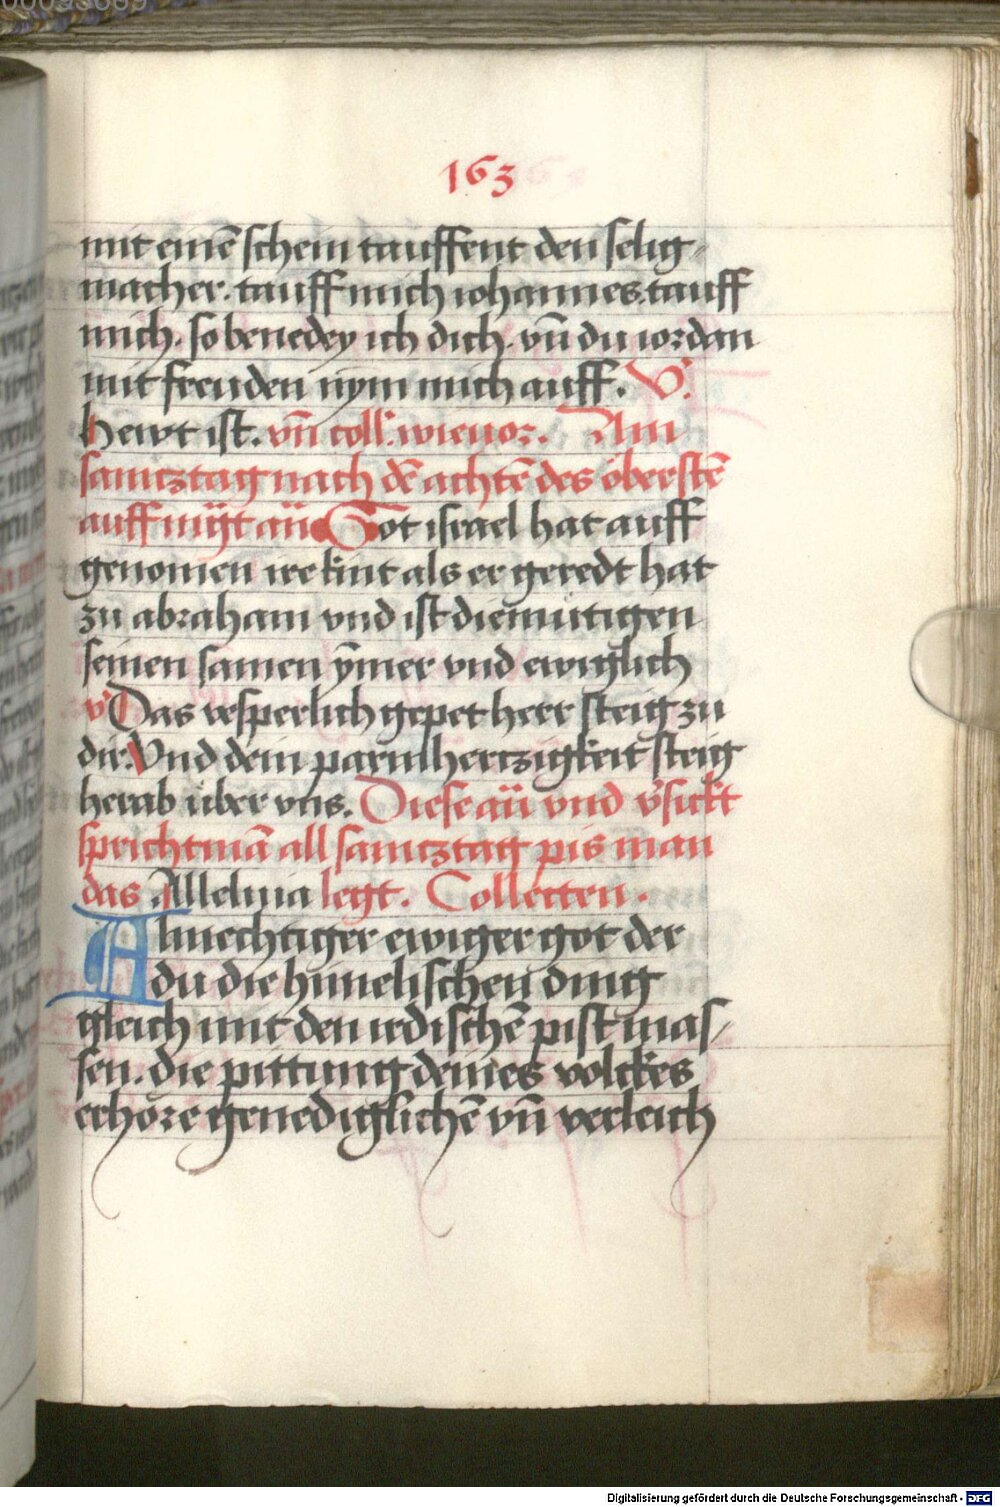 163
mit einē schein tauffent den selig-
macher. tauff mich iohannes. tauff
mich. so benedey ich dich. vn̄ du iordan
mit freuden nym mich auff. V.
hewt ist. vn̄ coll. wieuor. Am
samtztag nach dē achtē des öberstē
auff nv̈gt an̄ Got israel hat auff
genomen ire kint als er geredt hat
zu abraham vnd ist diemütigen
seinen samen ȳmer vnd ewiglich
v Das vesperlich gepet herr steig zu
dir. Vnd dein parmhertzigkeit steig
herab über vns. Diese an̄ vnd v̾sickt
spricht mā all samtztag pis man
das Alleluia legt. Collecten.
Almechtiger ewiger got der
du die himelischen ding
gleich mit den irdischē pist mas-
sen. die pittung deines volckes
erhöre genediglichē vn̄ verleich
Digitalisierung gefördert durch die Deutsche Forschungsgemeinschaft - DFG